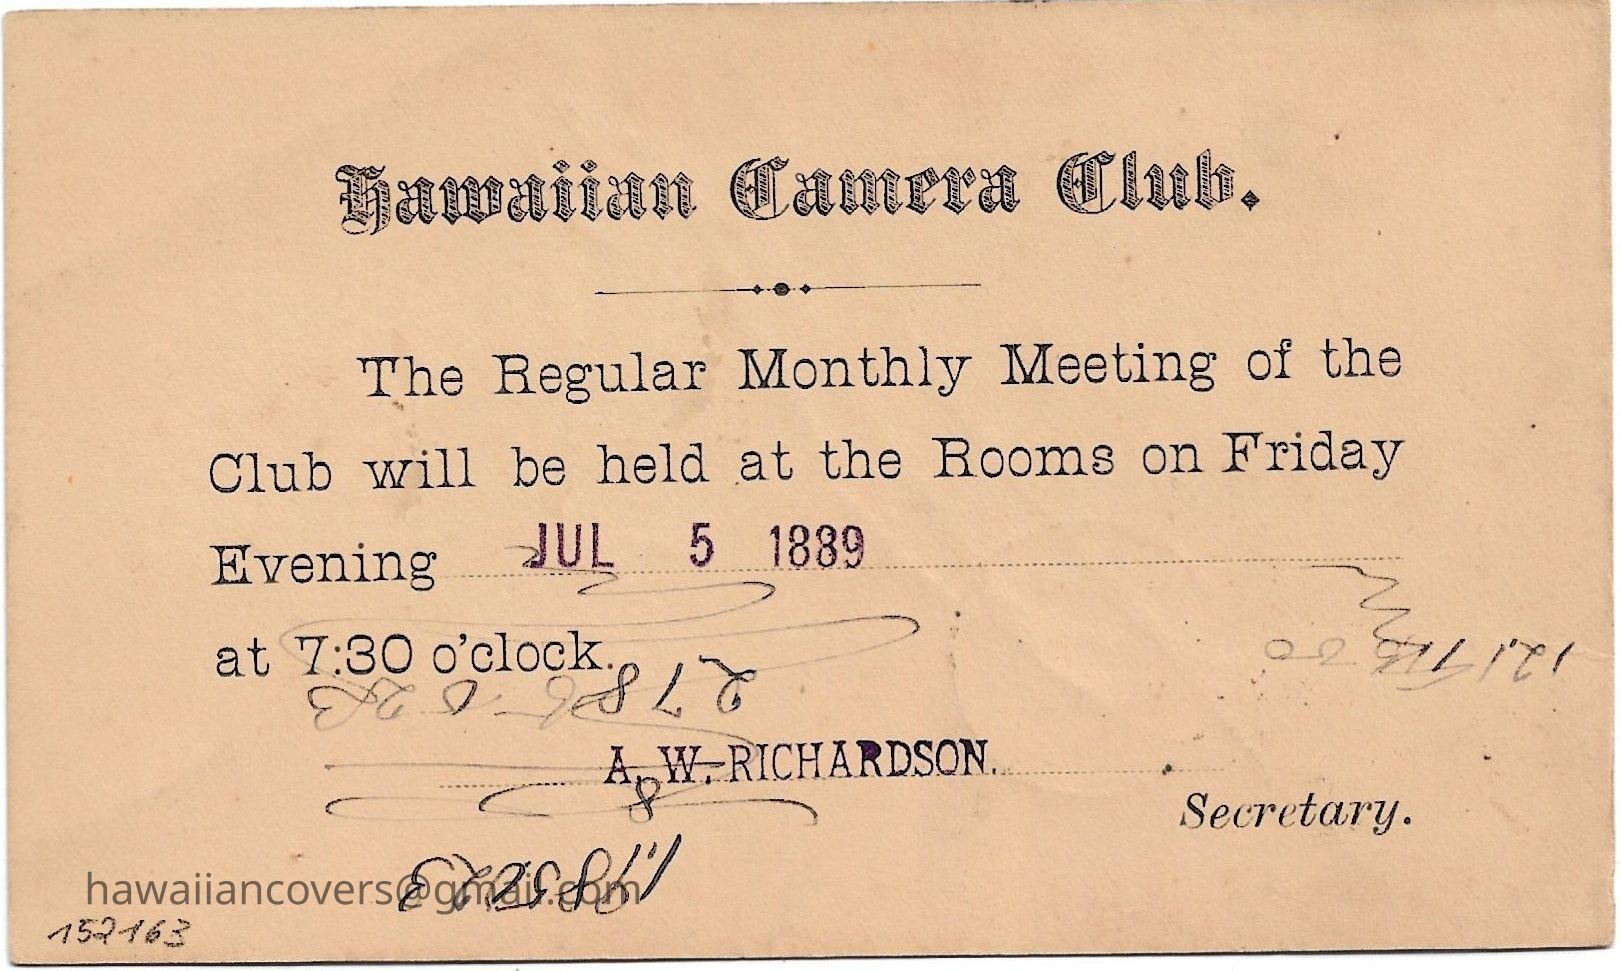 Hawaiian Camera Club.
The Regular Monthly Meeting of the
Club will be held at the Rooms on Friday
Evening JUL 5 1889
at 7:30 o'clock.
A. W. RICHARDSON.
Secretary.
hawaiiancovers@gmail.com
152163